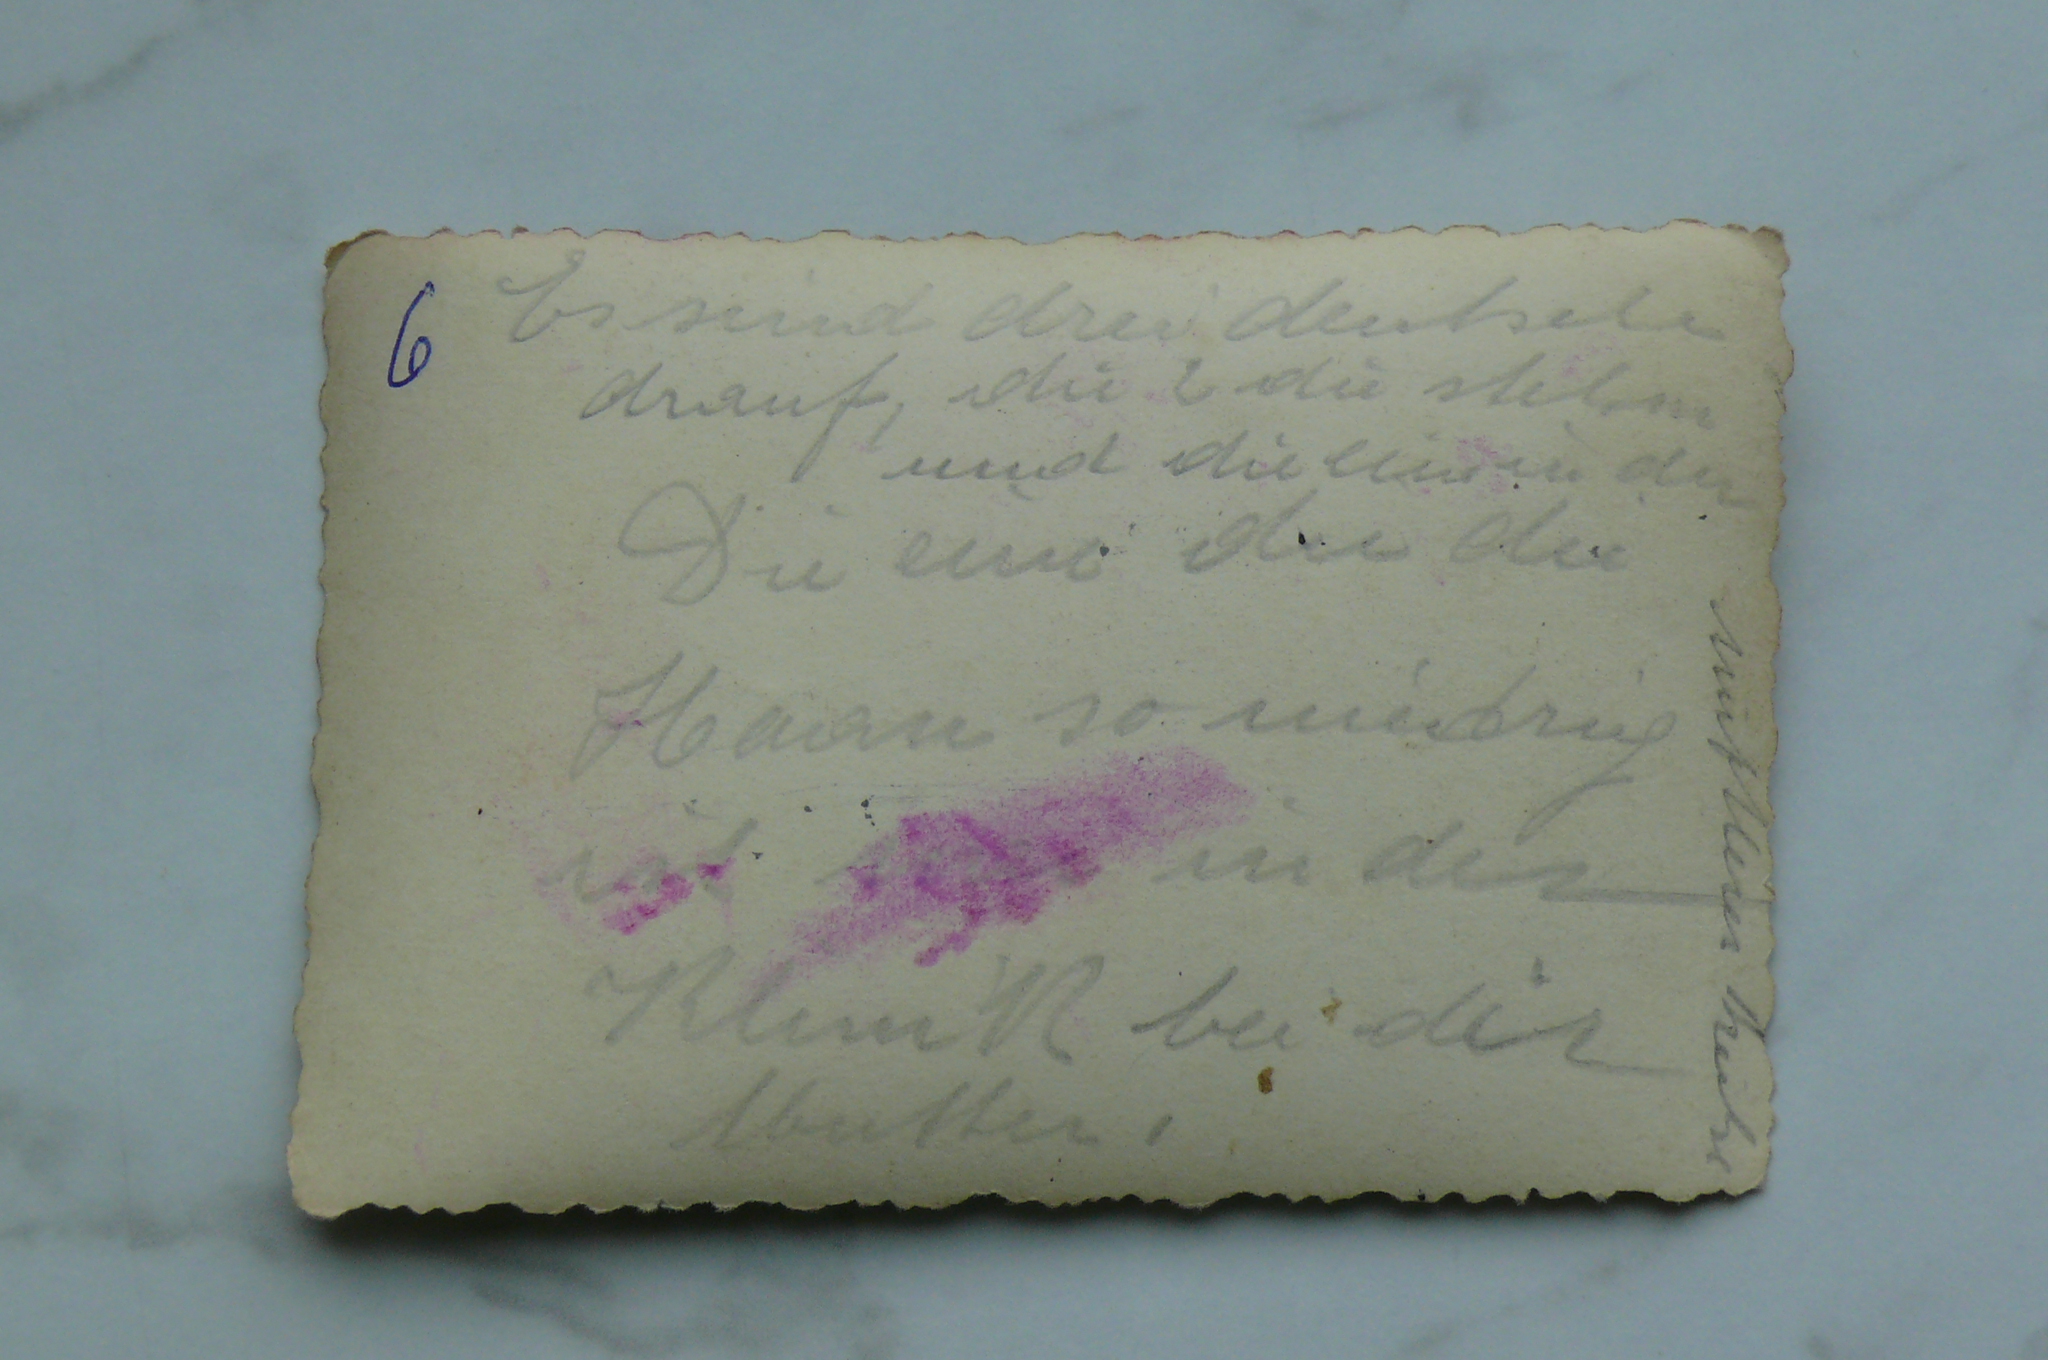 6
Es sind drei deutsche
drauf, die 2 die stehen
und die eine in der
Die eine die die
Haare so niedrig
ist in der
Klinik bei der
Mutter.